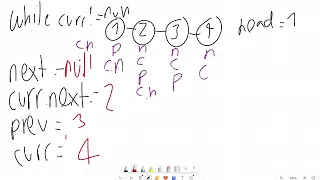 while curr != null
1 2 3 4
head = 1
c n p n n n
c n c c c
p p
c n
next = null
curr.next = 2
prev = 3
curr = 4